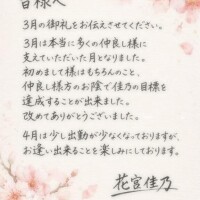 皆様へ
3月の御礼をお伝えさせてください。
3月は本当に多くの仲良し様に
支えていただいた月となりました。
初めまして様はもちろんのこと、
仲良し様方のお陰で佳乃の目標を
達成することが出来ました。
改めてありがとうございました。
4月は少し出勤が少なくなっておりますが、
お逢い出来ることを楽しみにしております。
花宮佳乃